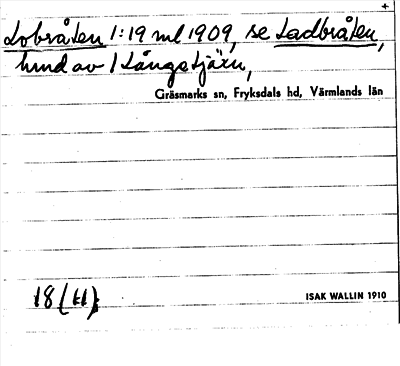 +
Lobråten 1:19 ml 1909, se Ladbråten,
hmd av 1 Långstjärn,
Gräsmarks sn, Fryksdals hd, Värmlands län
18
ISAK WALLIN 1910